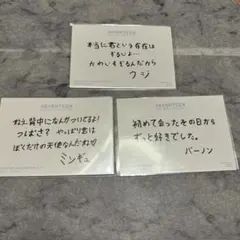 本当に君という存在は
ずるいよ…
かわいすぎるんだから
ウジ
SEVENTEEN
ねえ背中になんかついてるよ!
つばさ? やっぱり君は
ぼくだけの天使なんだねが
ミンギュ
SEVENTEEN
初めて会ったその日から
ずっと好きでした。
バーノン